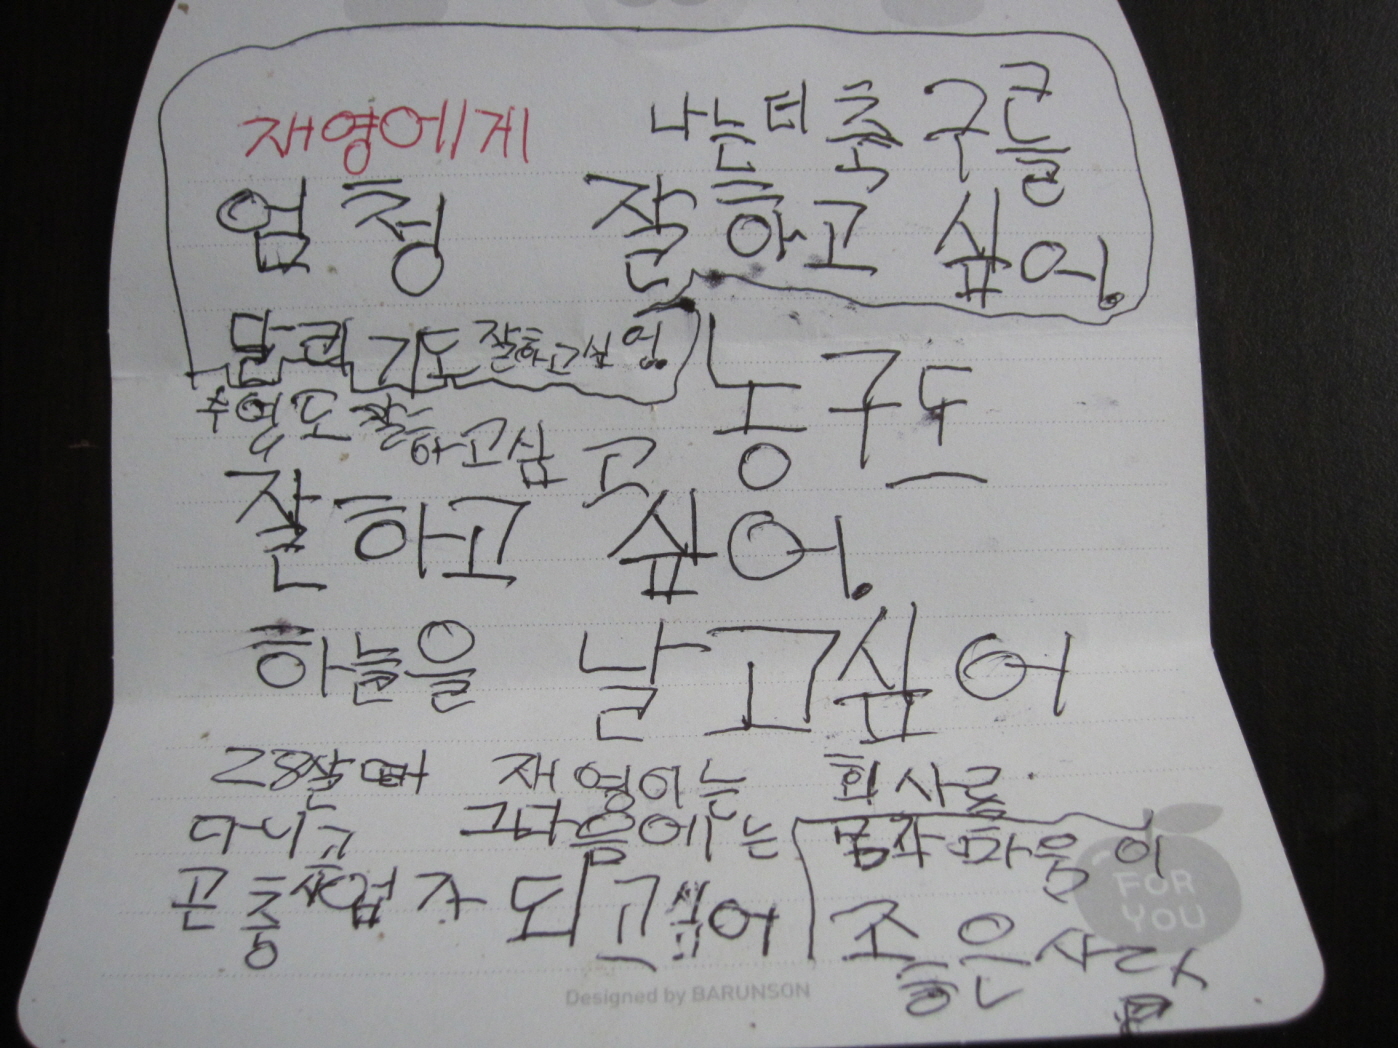 재영에게 나는 더 축구를
엄청 잘하고 싶어.
달리기도 잘하고 싶어.
수업도 잘하고 싶고 농구도
잘하고 싶어.
하늘을 날고 싶어
28살 때 재영이는 회사를
다니고 그 다음에는
곤충사업자 되고 싶어
몸과 마음이
좋은 사람
FOR YOU
Designed by BARUNSON